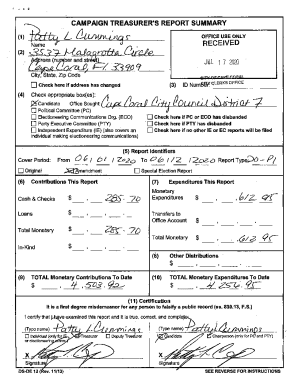 CAMPAIGN TREASURER'S REPORT SUMMARY
(1) Patty L Cummings
Name
OFFICE USE ONLY
RECEIVED
(2) 3537 Malagrotta Circle
Address (number and street)
Cape Coral, Fl. 33909
City, State, Zip Code
JUL 17 2020
Check here if address has changed
(3) ID Number:
(4) Check appropriate box(es):
Candidate Office Sought: Cape Coral City Council District 7
Political Committee (PC)
Electioneering Communications Org. (ECO)
Check here if PC or ECO has disbanded
Party Executive Committee (PTY)
Check here if PTY has disbanded
Independent Expenditure (IE) (also covers an
individual making electioneering communications)
Check here if no other IE or EC reports will be filed
(5) Report Identifiers
Cover Period: From 06/01/2020 To 06/12/2020 Report Type: DO-P1
Original Amendment Special Election Report
(6) Contributions This Report
(7) Expenditures This Report
Cash & Checks $ 285.70
Monetary
Expenditures $ 612.95
Loans $
Transfers to
Office Account $
Total Monetary $ 285.70
Total Monetary $ 612.95
In-Kind $
(8) Other Distributions
$
(9) TOTAL Monetary Contributions To Date
$ 4,503.92
(10) TOTAL Monetary Expenditures To Date
$ 4,256.95
(11) Certification
It is a first degree misdemeanor for any person to falsify a public record (ss. 839.13, F.S.)
I certify that I have examined this report and it is true, correct, and complete:
(Type name) Patty L Cummings
(Type name) Patty Cummings
Individual (only for IE
or electioneering comm.)
Treasurer
Deputy Treasurer
Candidate
Chairperson (only for PC and PTY)
X
X
Signature
Signature
DS-DE 12 (Rev. 11/13)
SEE REVERSE FOR INSTRUCTIONS